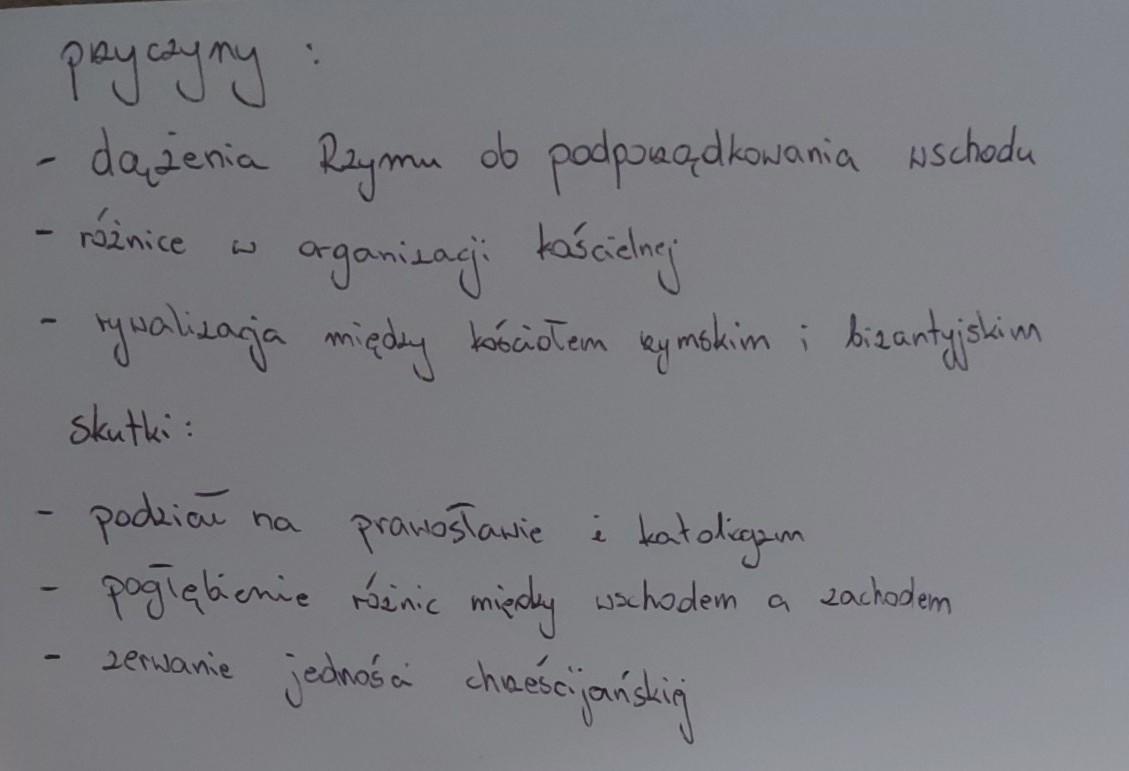 przyczyny :
- dążenia Rzymu ob podporządkowania wschodu
- różnice w organizacji kościelnej
- rywalizacja między kościołem rzymskim i bizantyjskim
skutki :
- podział na prawosławie i katolicyzm
- pogłębienie różnic między wschodem a zachodem
- zerwanie jedności chrześcijańskiej